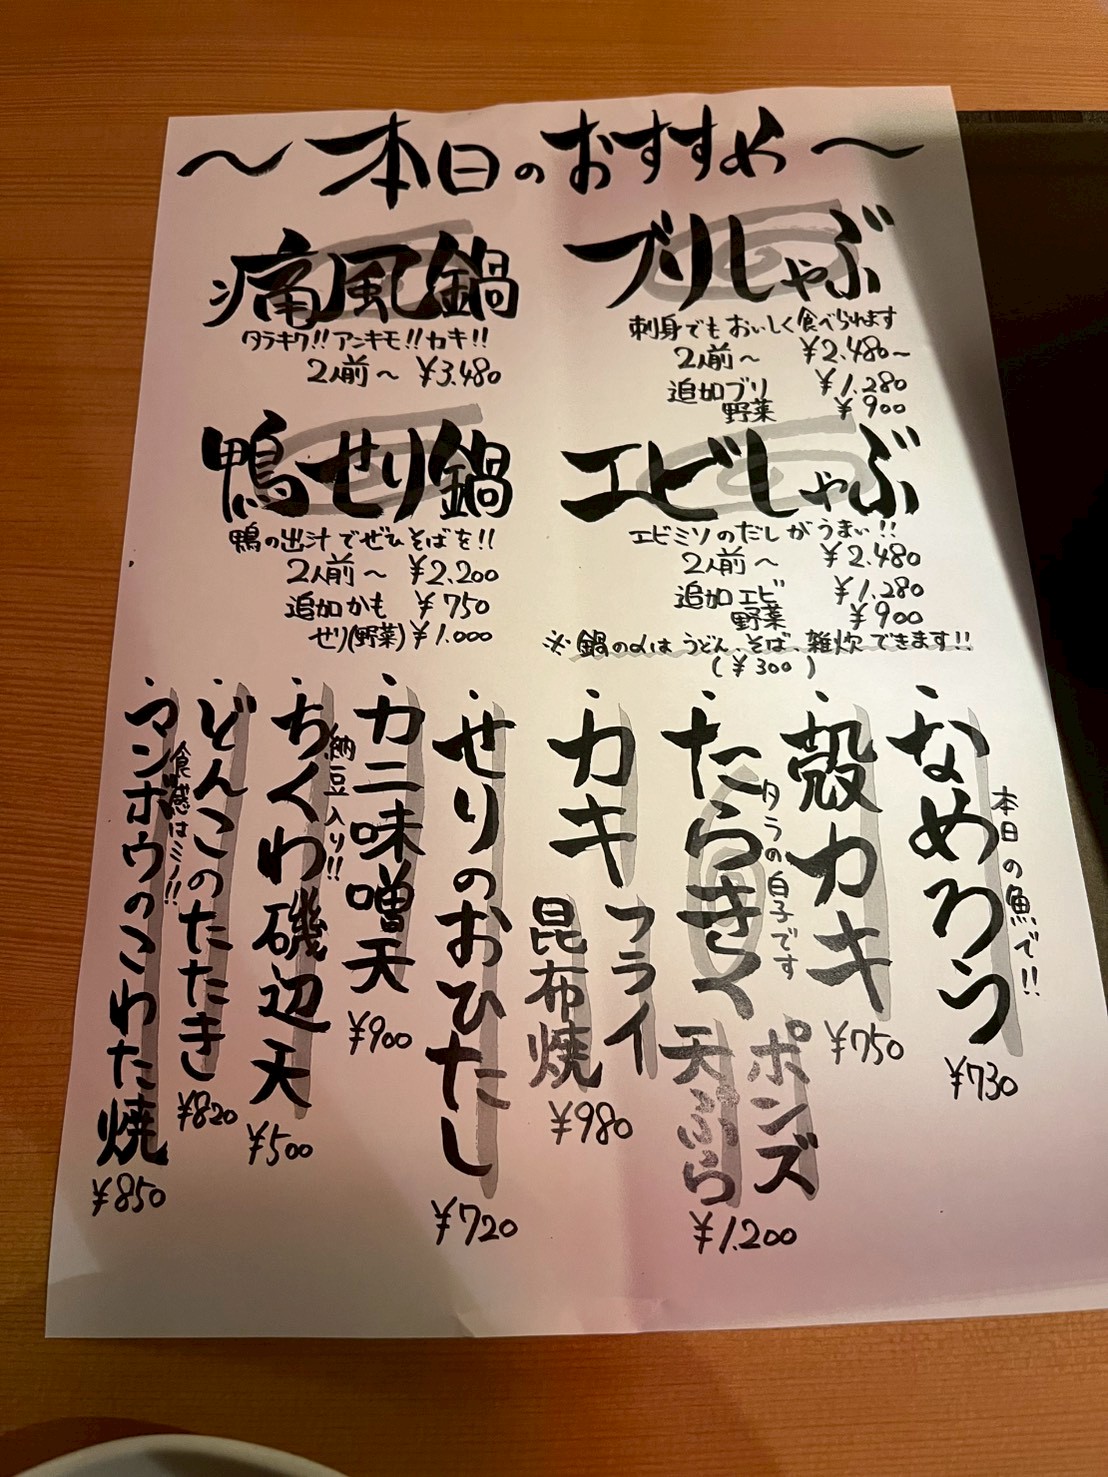 ～本日のおすすめ～
痛風鍋
タラキク!!アンキモ!!カキ!!
2人前～ ¥3.480
ブリしゃぶ
刺身でもおいしく食べられます
2人前～ ¥2.480～
追加ブリ ¥1.280
野菜 ¥900
鴨せり鍋
鴨の出汁でぜひそばを!!
2人前～ ¥2.200
追加かも ¥750
せり(野菜) ¥1.000
エビしゃぶ
エビミソのだしがうまい!!
2人前～ ¥2.480
追加エビ ¥1.280
野菜 ¥900
※鍋のαはうどん、そば、雑炊できます!!
(¥300)
・なめろう
本日の魚で!!
¥730
・殻カキ
¥750
・たらきく
タラの白子です
ポンズ
天ぷら
¥1.200
・カキ
フライ
昆布焼
¥980
・せりのおひたし
¥720
・カニ味噌天
¥900
・ちくわ磯辺天
納豆入り!!
¥500
・どんこのたたき
¥820
・マンボウのこわた焼
食感はミノ!!
¥850